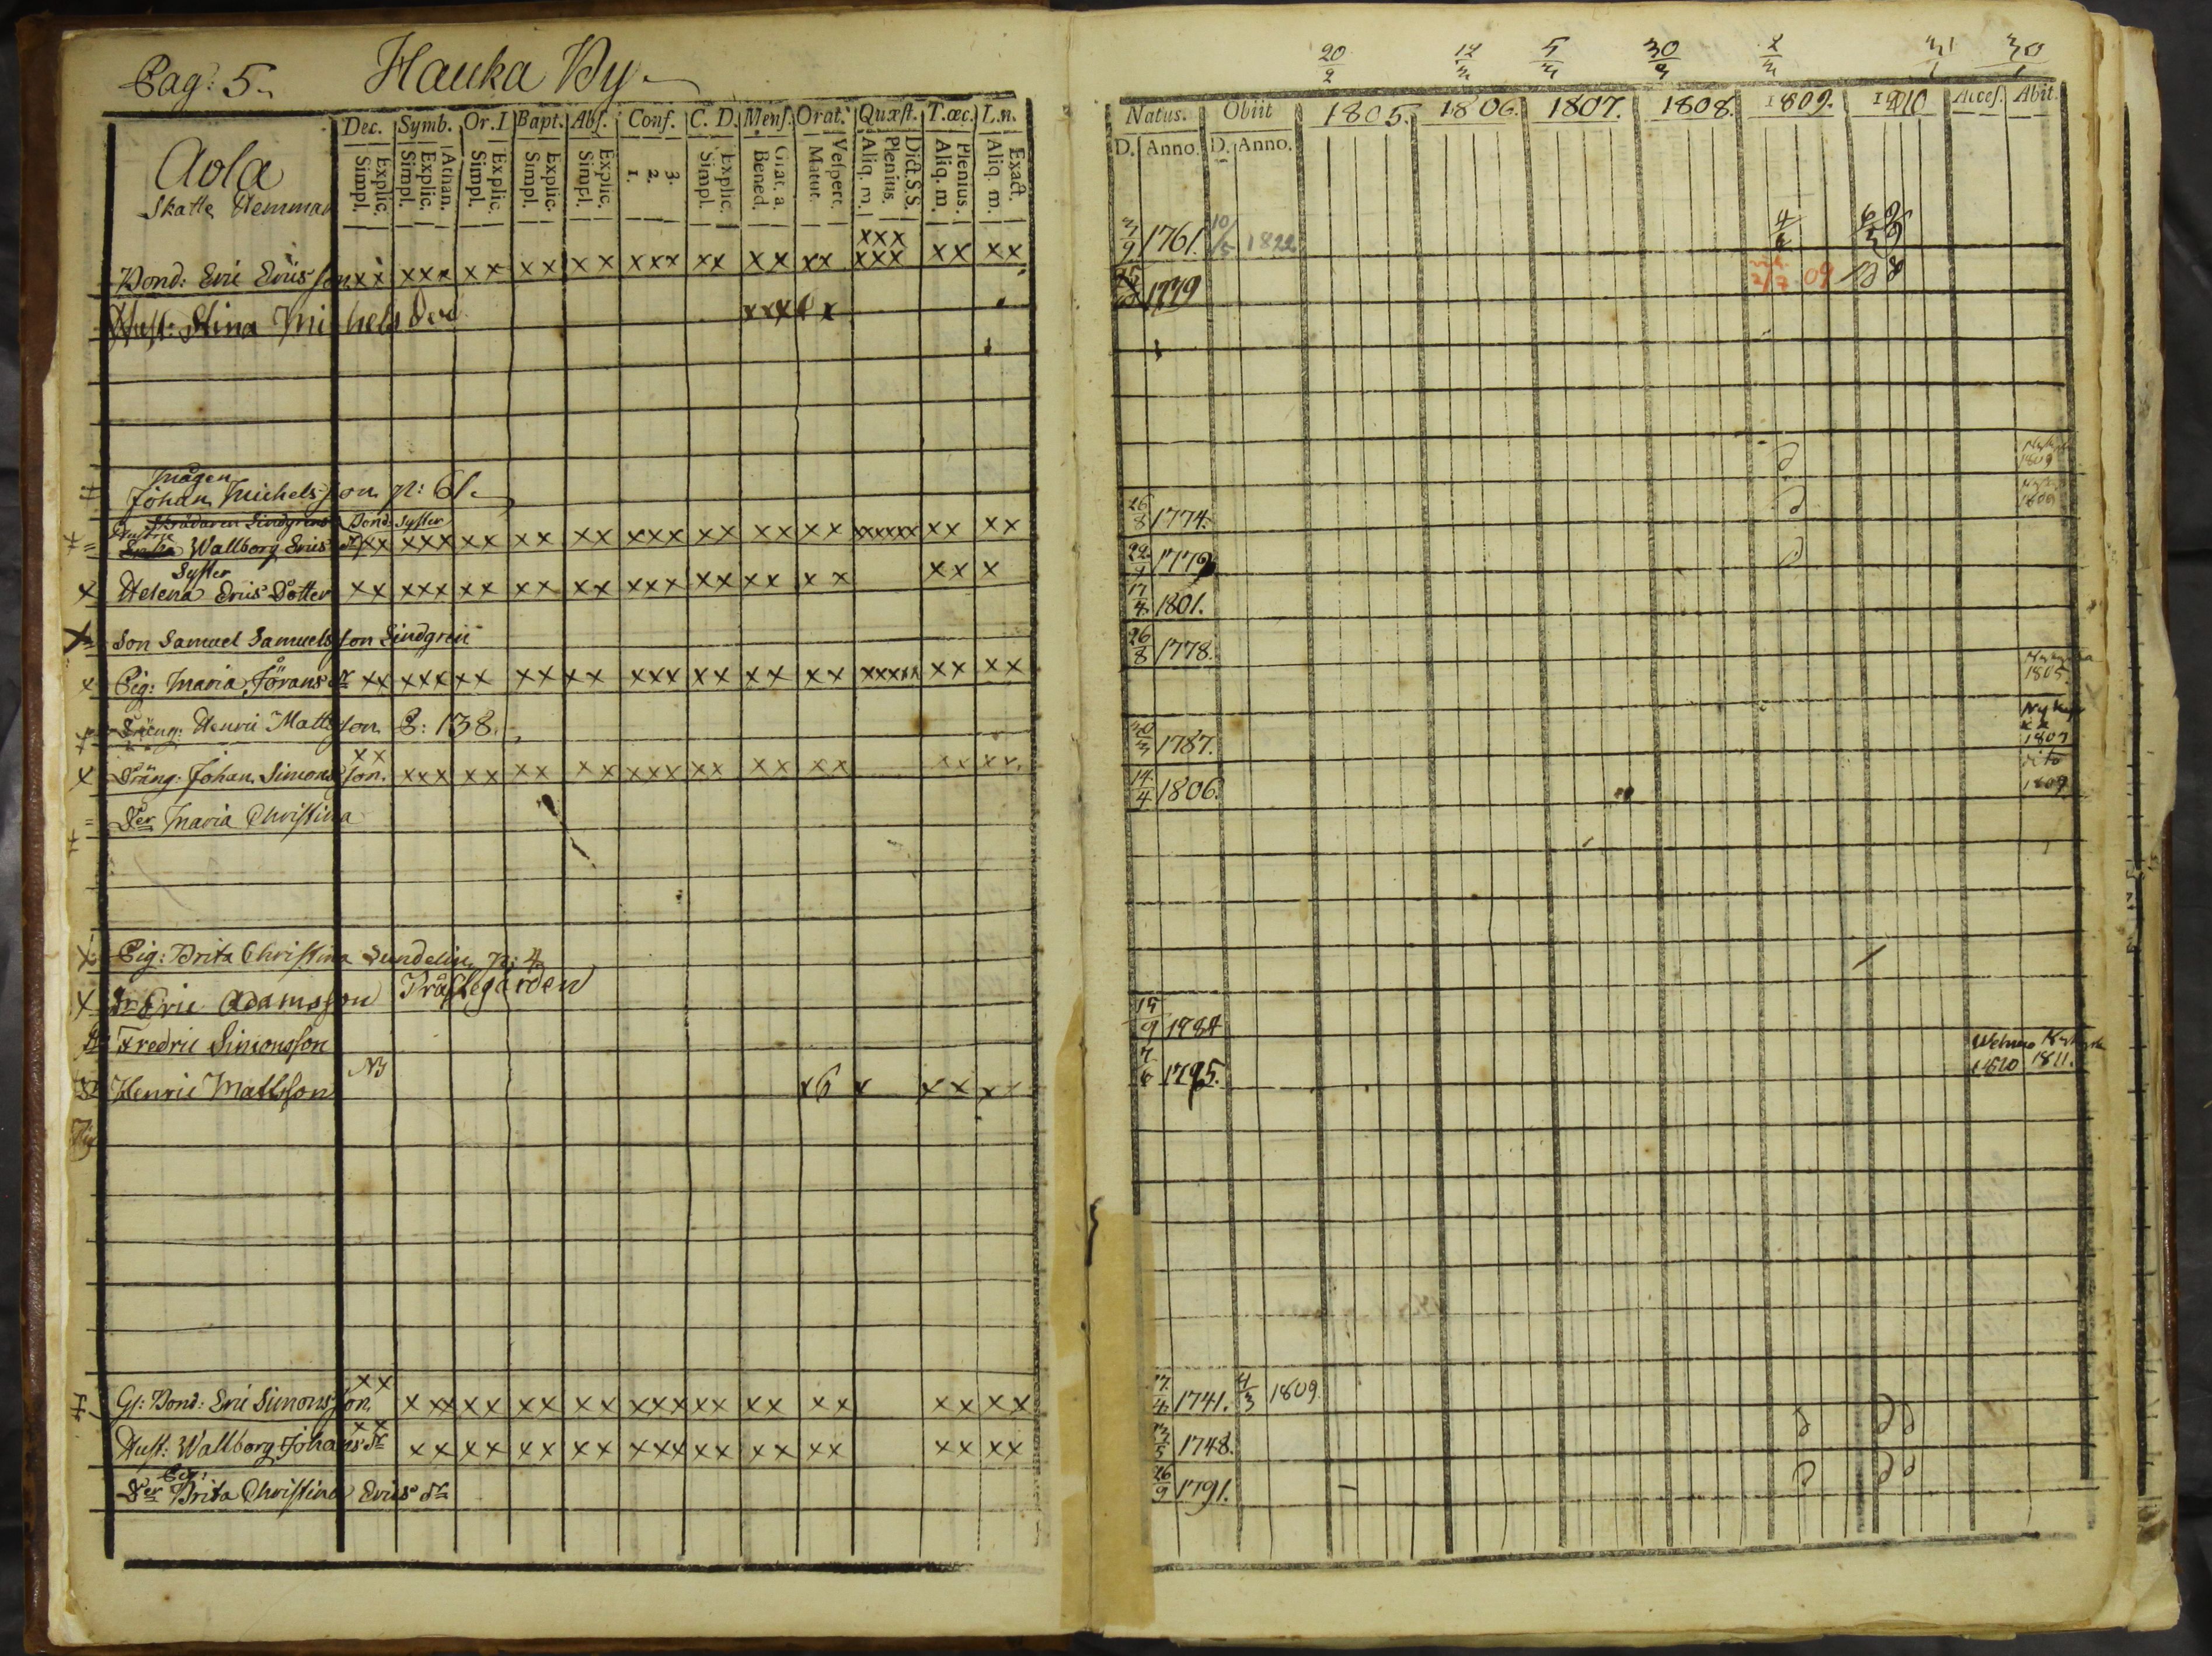 Pag: 5. Hauka By
Dec. Symb. Or. I Bapt. Abs. Conf. C. D. Mens. Orat. Quæst. T. œc. L. n.
Explic. Simpl. Athan. Explic. Simpl. Explic. Simpl. Explic. Simpl. Explic. Simpl. 3. 2. 1. Explic. Simpl. Grat. a. Bened. Vespert. Matut. Dict. S. S. Plenius. Aliq. m. Plenius. Aliq. m. Exact. Aliq. m.
Aola
Skatte Hemman
Bond: Eric Ericsson xx xxx xx xx xx xxx xx xx xx xxx xxx xx xx
Hust: Stina Michelsdod
Mågen
Johan Michelsson p: 61.
Skrädaren Lindgrens Bond: Syster
Wallborg Erics dr xx xxx xx xx xx xxx xx xx xx xxxxxx xx xx
Syster
Helena Erics Dotter xx xxx xx xx xx xxx xx xx xx xxx
Son Samuel Samuelsson Lindgren
Pig: Maria Görans dr xx xxx xx xx xx xxx xx xx xx xxxxxx xx xx
Dräng: Henric Mattsson P: 138.
Dräng: Johan Simonsson. xx xxx xx xx xx xxx xx xx xx xx xx
Der Maria Christina
Pig: Brita Christina Sundelin p: 4
Dr Eric Adamsson Prästegården
Fredric Simonsson
Henric Mattsson
Gl: Bond: Eric Simonsson xx xxx xx xx xx xxx xx xx xx xx xx
Hust: Wallborg Johans dr xx xx xx xx xx xxx xx xx xx xx xx
Pig:
Der Brita Christina Erics dr
20/2 30/9
Natus. Obiit 1805. 1806. 1807. 1808. 1809. 1810 Acces. Abit.
D. Anno. D. Anno.
3/9 1761. 10/5 1822
1779 09
1809
1809
26/8 1774.
22 1779
17/4 1801.
26/8 1778.
1805.
Nykyr
1787. 1807
dito
14/4 1806. 1809
15/9 1784
1795. Wehmo 1810 1811.
1741. 4/3 1809.
1748.
26/9 1791.